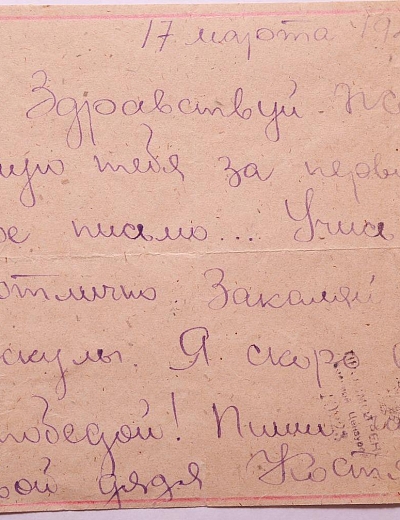 17 марта 194
Здравствуй
тебя за перв
ое письмо... Учись
отлично. Закаляй
скулы. Я скоро
победой! Пиши
вой дядя Костя